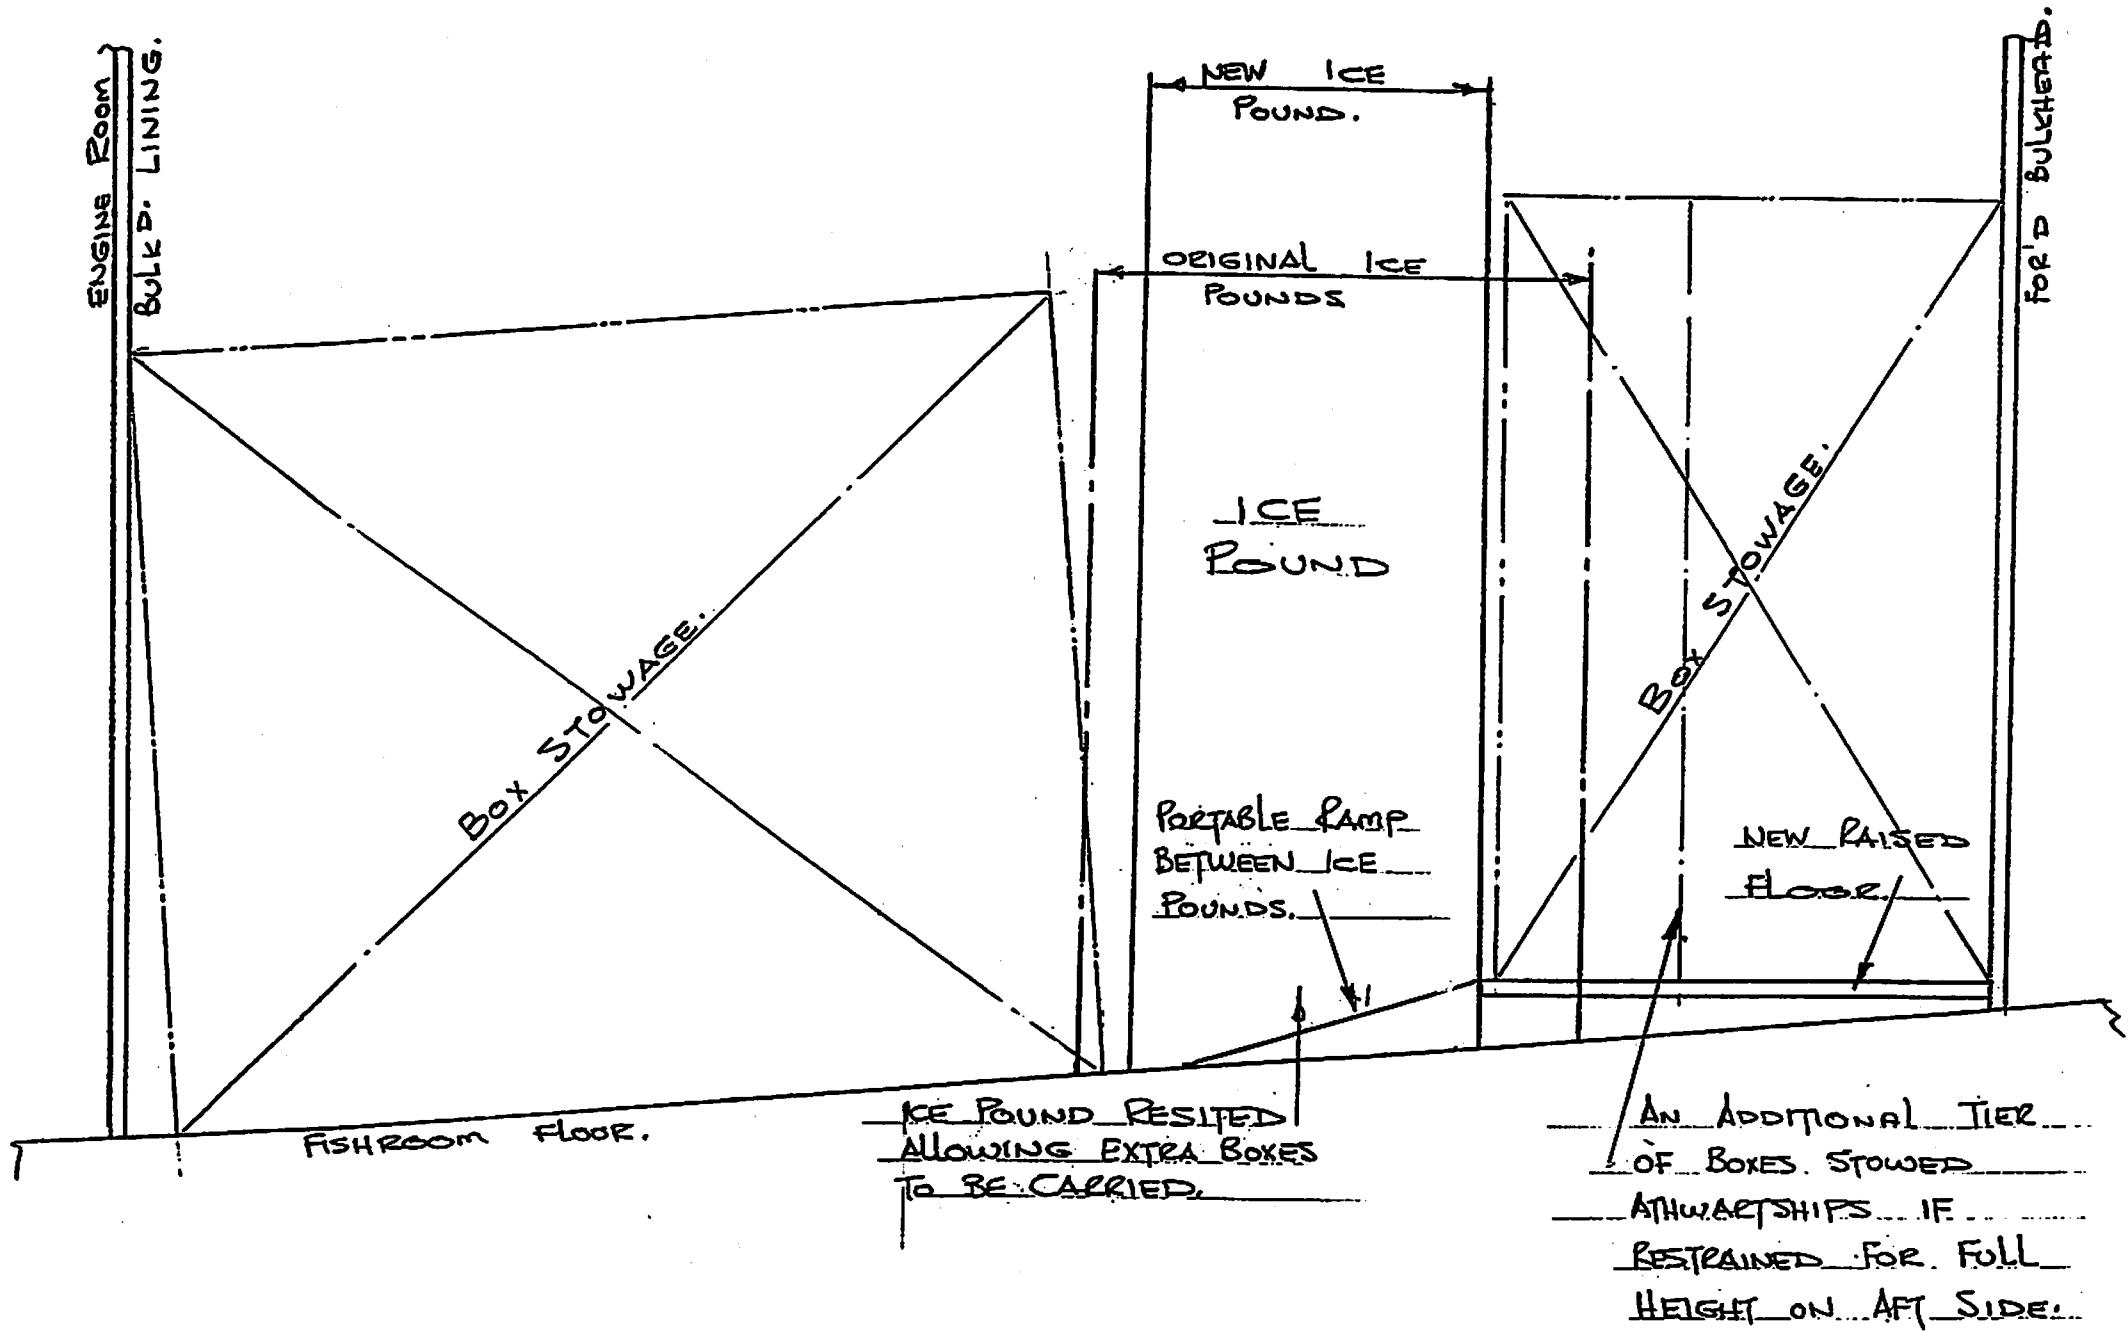 ENGINE ROOM
BULKD. LINING.
NEW ICE
POUND.
FOR'D BULKHEAD.
ORIGINAL ICE
POUNDS
ICE
POUND
BOX STOWAGE.
BOX STOWAGE.
PORTABLE RAMP
BETWEEN ICE
POUNDS.
NEW RAISED
FLOOR.
FISHROOM FLOOR.
ICE POUND RESITED
ALLOWING EXTRA BOXES
TO BE CARRIED.
AN ADDITIONAL TIER
OF BOXES STOWED
ATHWARTSHIPS IF
RESTRAINED FOR FULL
HEIGHT ON AFT SIDE.